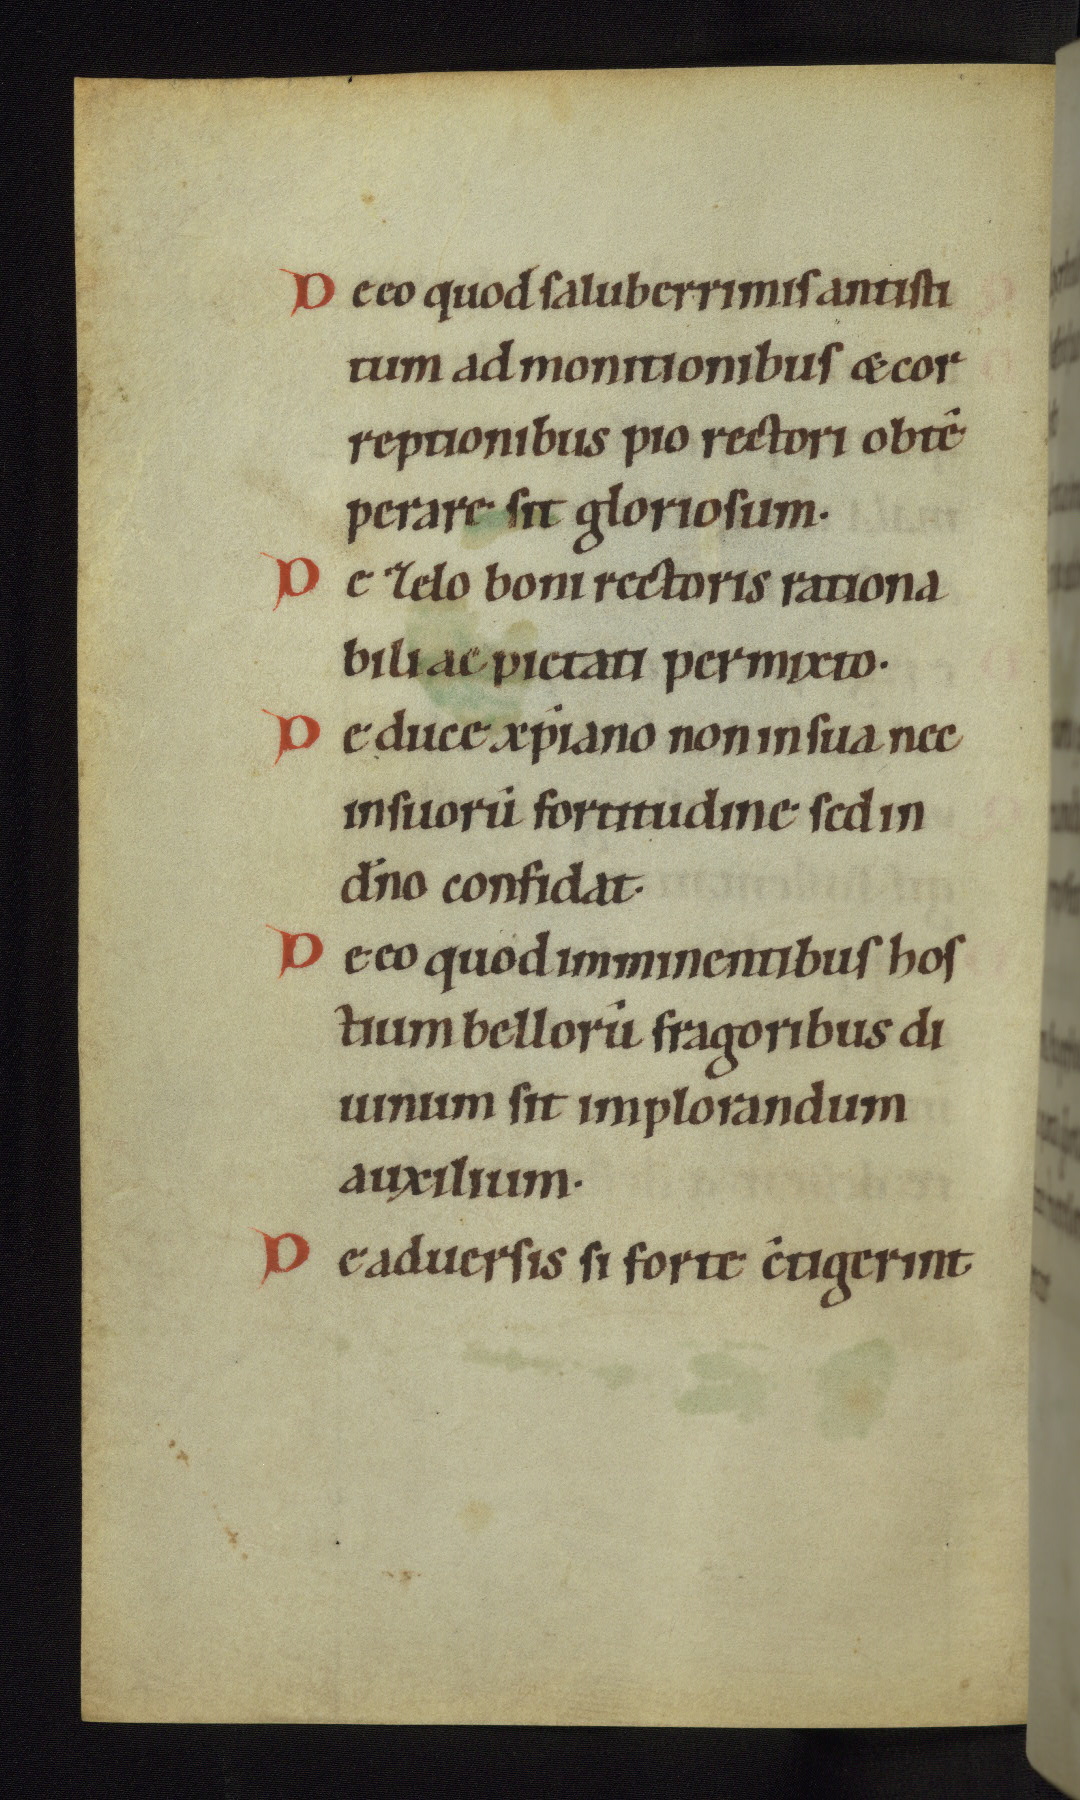 De eo quod saluberrimis antisti
tum admonitionibus & cor
reptionibus pio rectori obtē
perare sit gloriosum·
De zelo boni rectoris rationa
bili ac pietati permixto·
De duce xp̄iano non in sua nec
in suorū fortitudine sed in
dn̄o confidat·
De eo quod imminentibus hos
tium bellorū fragoribus di
uinum sit implorandum
auxilium·
De aduersis si forte c̄tigerint